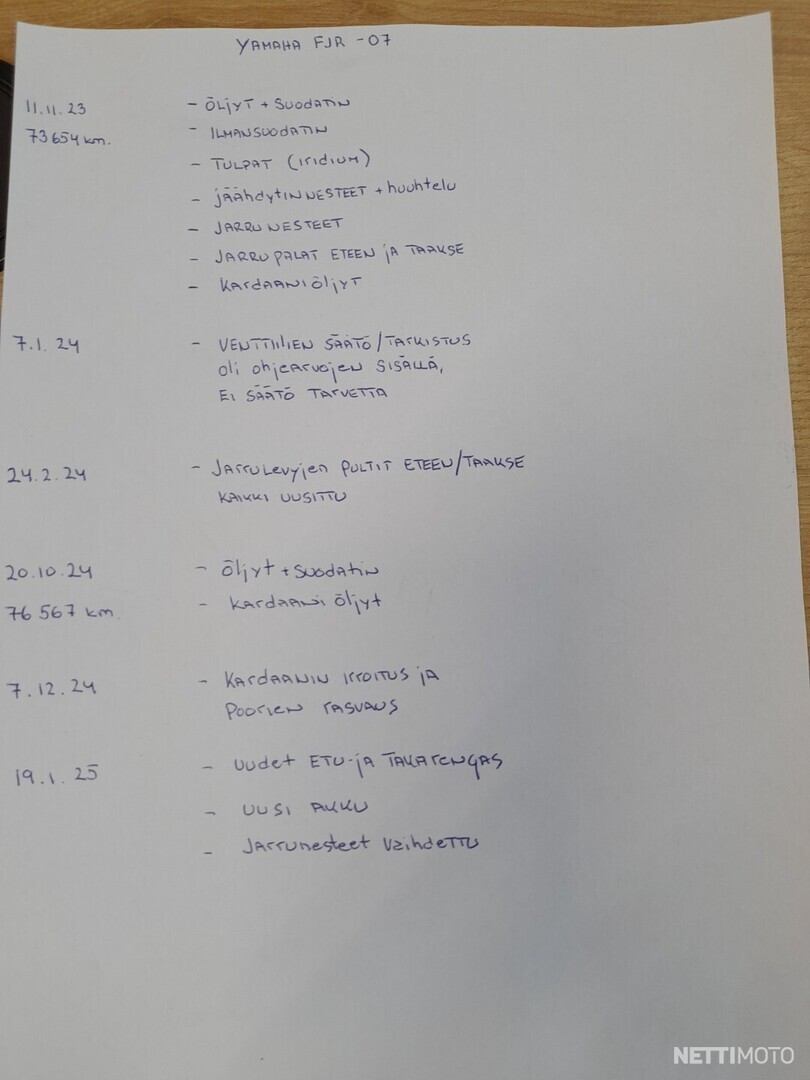 YAMAHA FJR -07
11.11.23 - ÖLJYT + SUODATIN
73 654 km. - ILMANSUODATIN
- TULPAT (iridium)
- jäähdytinNESTEET + huuhtelu
- JARRUNESTEET
- JARRUPALAT ETEEN jA TAAKSE
- KardaaniöljyT
7.1.24 - VENTTIILIEN SÄÄTÖ/TARKISTUS
oli ohjearvojen SISÄLLÄ,
EI SÄÄTÖ TARVETTA
24.2.24 - Jarrulevyjen PULTIT ETEEN/TAAKSE
KAIKKI UUSITTU
20.10.24 - Öljyt + SUODATIN
76 567 km. - KARDAANI ÖljyT
7.12.24 - KARDAANIN IRROITUS jA
POORIEN RASVAUS
19.1.25 - Uudet ETU-jA TAKARENGAS
- UUSI AKKU
- Jarrunesteet VaihdeTTU
NETTIMOTO